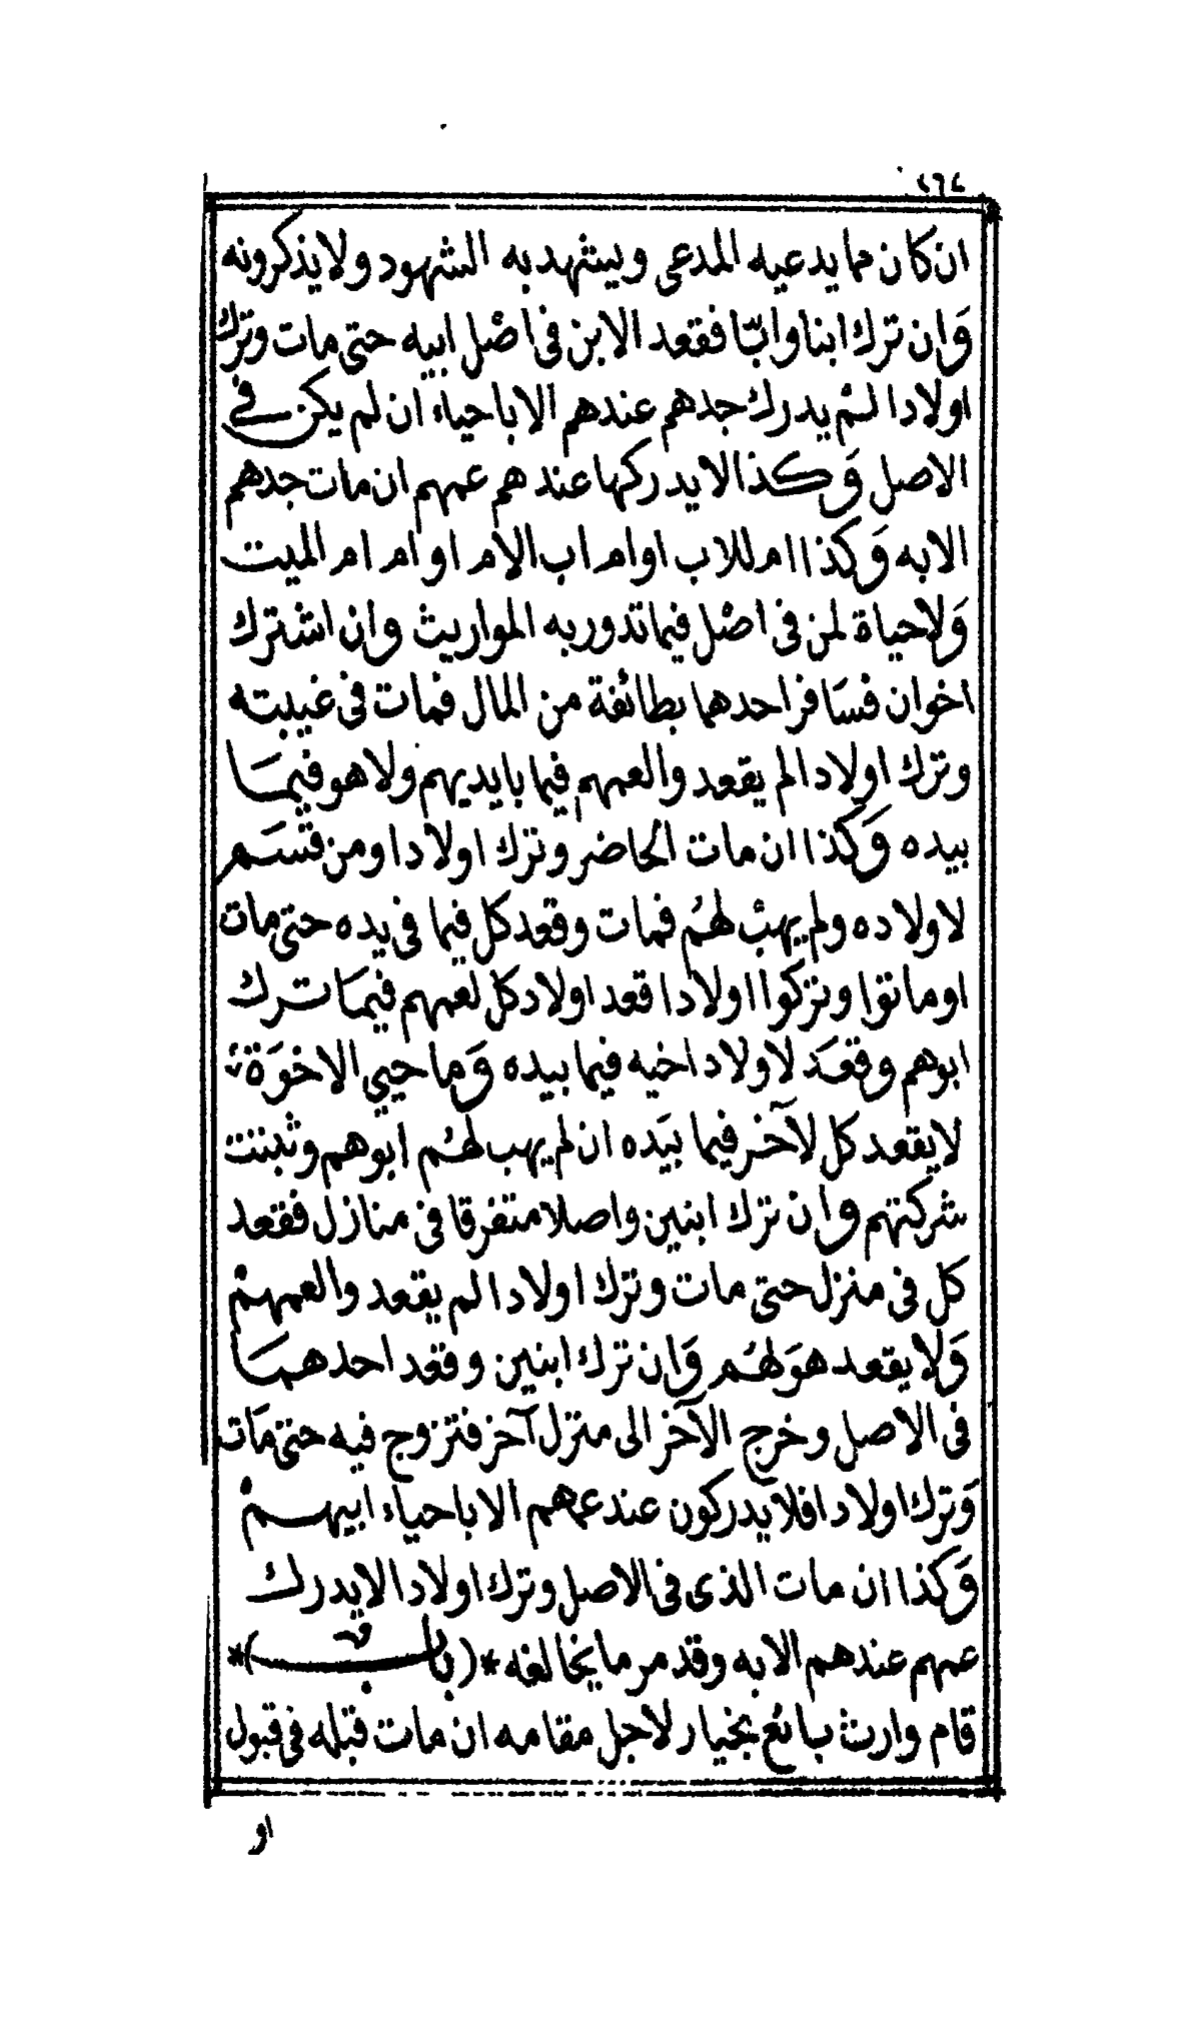 ان كان مما يدعيه المدعى ويشهد به الشهود ولا يذكرونه
وَان ترك ابنا وابًا فقعد الابن فى اصْل ابيه حتى مات وترك
اولادا لمْ يدرك جدهم عندهم الا باحياء ان لم يكن فى
الاصل وَكذا لا يدركها عندهم عمهم ان مات جدهم
الا به وَكذا ام للاب او ام اب الام او ام ام الميت
وَلا حياة لمن فى اصْل فيما تدور به المواريث وان اشترك
اخوان فسَافر احدهما بطائفة من المال فمات فى غيبته
وترك اولادا لم يقعد والعمهم فيما بايديهم ولا هو فيمَا
بيده وَكذا ان مات الحاضر وترك اولادا ومن قسَم
لاولاده ولم يهبْ لهُم فمات وقعد كل فيما فى يده حتى مات
او ماتوا وتركوا اولادا قعد اولاد كل لعمهم فيمَا ترك
ابوهم وقعَد لاولاد اخيه فيما بيده وَما حيي الاخوَة
لا يقعد كل لآخر فيما بيَده ان لم يهب لهُم ابوهم وثبتت
شركتهم وان ترك ابنين واصلا متفرقا فى منازل فقعد
كل فى منزل حتى مات وترك اولادا لم يقعد والعمهمْ
وَلا يقعد هوَ لهُم وَان ترك ابنين وقعد احدهمَا
فى الاصل وخرج الآخر الى منزل آخر فتزوج فيه حتى مَات
وَترك اولادا فلا يدركون عند عمهم الا باحياء ابيهمْ
وَكذا ان مات الذى فى الاصل وترك اولادا لا يدرك
عمهم عندهم الا به وقد مر ما يخالفه *(باب)*
قام وارث بائع بخيار لاجل مقامه ان مات قبله فى قبول
او